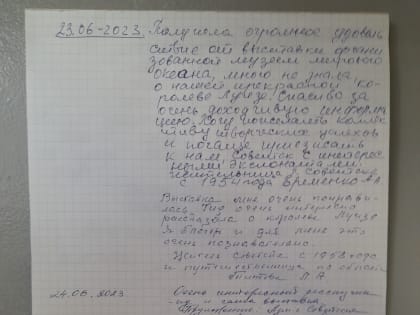 23.06-2023. Получила огромное удоволь
ствие от выставки органи
зованной музеем мирового
океана, много не знала,
о нашей прекрасной ко-
ролеве Луизе. Спасибо за
очень доходчивую информа
цию. Хочу пожелать коллек
тиву творческих успехов
и почаще приезжать
к нам, Советск с интерес
ными экспонатами.
жительница г. Советска
с 1954 года Еременко
Выставка мне очень понрави-
лась. Гид очень интересно
рассказала о королеве Луизе
Я блогер и для меня это
очень познавательно.
Житель Советска с 1958 года
и путешественница по области
Л.А.
24.06.2023 Очень интересный экскурсия
и сама выставка